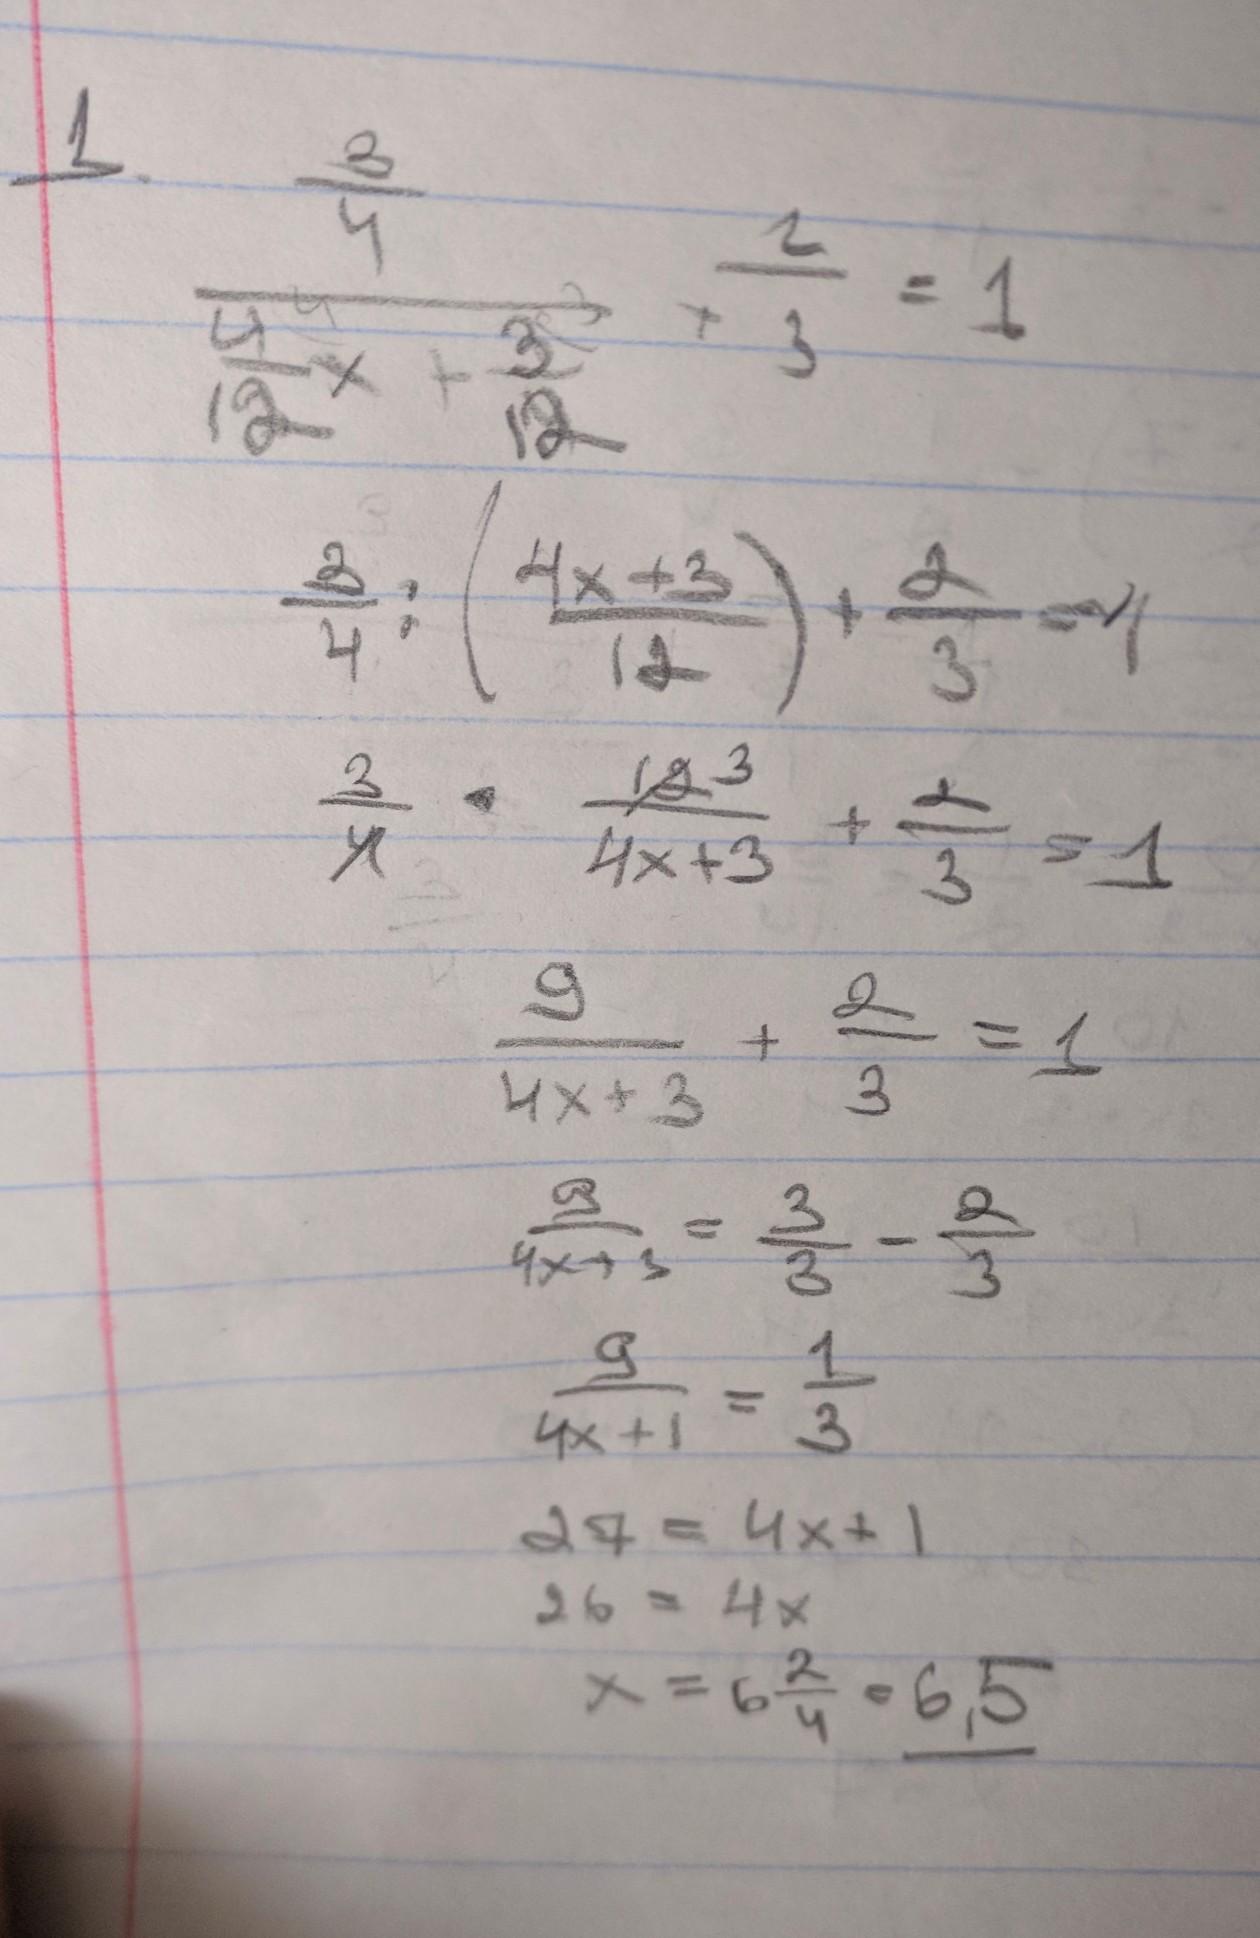 1.
3/4 / (4/12 x + 3/12) + 2/3 = 1
3/4 : ( (4x+3)/12 ) + 2/3 = 1
3/4 · 12 3/(4x+3) + 2/3 = 1
9/(4x+3) + 2/3 = 1
9/(4x+3) = 3/3 - 2/3
9/(4x+1) = 1/3
27 = 4x+1
26 = 4x
x = 6 2/4 = 6,5